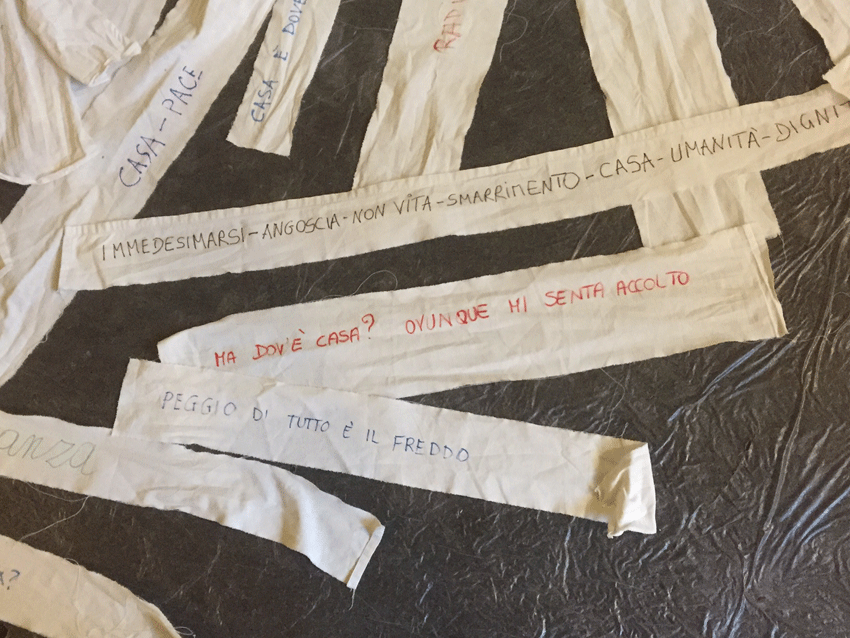 CASA - PACE
CASA È DOVE
IMMEDESIMARSI - ANGOSCIA - NON VITA - SMARRIMENTO - CASA - UMANITÀ - DIGNIT
MA DOV'È CASA? OVUNQUE MI SENTA ACCOLTO
PEGGIO DI TUTTO È IL FREDDO
anza